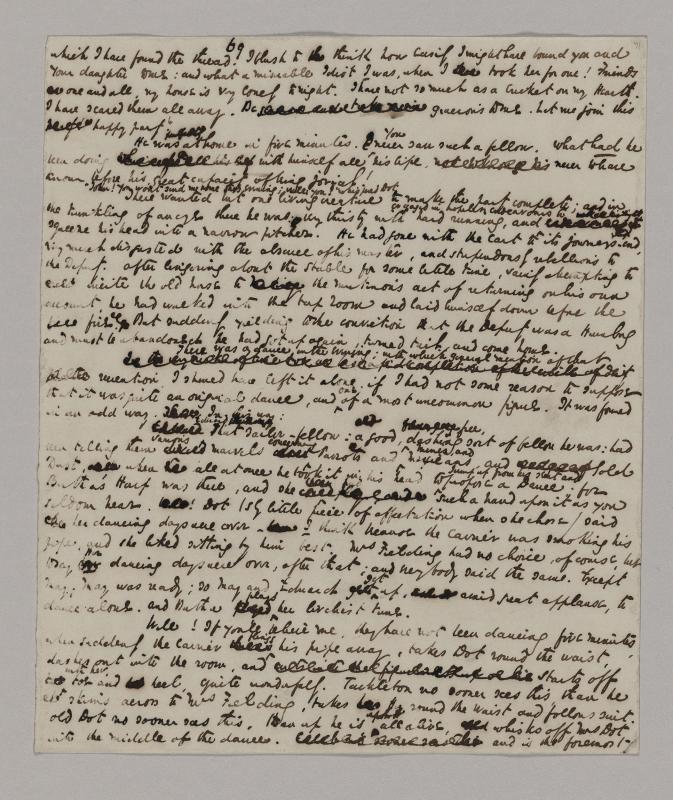 69
which I have found the thread! I blush to think how easily I might have bound you and
Your daughter Ma'am: and what a miserable Idiot I was, when I took her for one! Friends
one and all, my house is very lonely tonight. I have not so much as a Cricket on my Hearth.
I have scared them all away. Be gracious Ma'am. Let me join this
happy party"
He was at home in five minutes. You never saw such a fellow. What had he
been doing with himself all his life, never to have
known before his great capacity of being jovial!
"John! You won't send me home this evening; will you?" whispered Dot
There wanted but one living creature to make the party complete; and in
the twinkling of an eye there he was; very thirsty with hard running, and engaged in hopeless endeavours to
squeeze his head into a narrow pitcher. He had gone with the Cart to its Journey's end,
very much disgusted with the absence of his master, and stupendously rebellious to
the Deputy. After lingering about the Stable for some little time, vainly attempting to
incite the old horse to the mutinous act of returning on his own
account, he had walked into the tap Room and laid himself down before the
fire. But suddenly yielding to the conviction that the Deputy was a Humbug
and must be abandoned, he had got up again, turned tail, and come home.
There was a dance in the evening: with which general mention of that
recreation I should have left it alone, if I had not some reason to suppose
that it was quite an original dance, and one of a most uncommon figure. It was formed
in an odd way. In this way:
Edward, that Sailor-fellow: a good, free dashing sort of fellow he was: had
been telling them various marvels concerning Parrots and mines, and Mexicans, and Gold
Dust, when all at once he took it in his head to jump up from his seat and propose a dance: for
Bertha's Harp was there, and she had such a hand upon it as you
seldom hear. Dot (sly little piece of affectation when she chose) said
her dancing days were over. I think because the Carrier was smoking his
pipe, and she liked sitting by him best. Mrs Fielding had no choice, of course, but
to say her dancing days were over, after that; and everybody said the same. Except
May; May was ready; so May and Edward got up, amid great applause, to
dance alone. and Bertha plays her liveliest tune.
Well! If you'll believe me, they have not been dancing five minutes
when suddenly the Carrier flings his pipe away, takes Dot round the waist,
dashes out into the room, and starts off
with her toe and heel, quite wonderfully. Tackleton no sooner sees this than he
skims across to Mrs Fielding, takes her round the waist and follows suit.
Old Dot no sooner sees this, than up he is, all alive, whisks off Mrs Dot
into the middle of the dance, and is the foremost